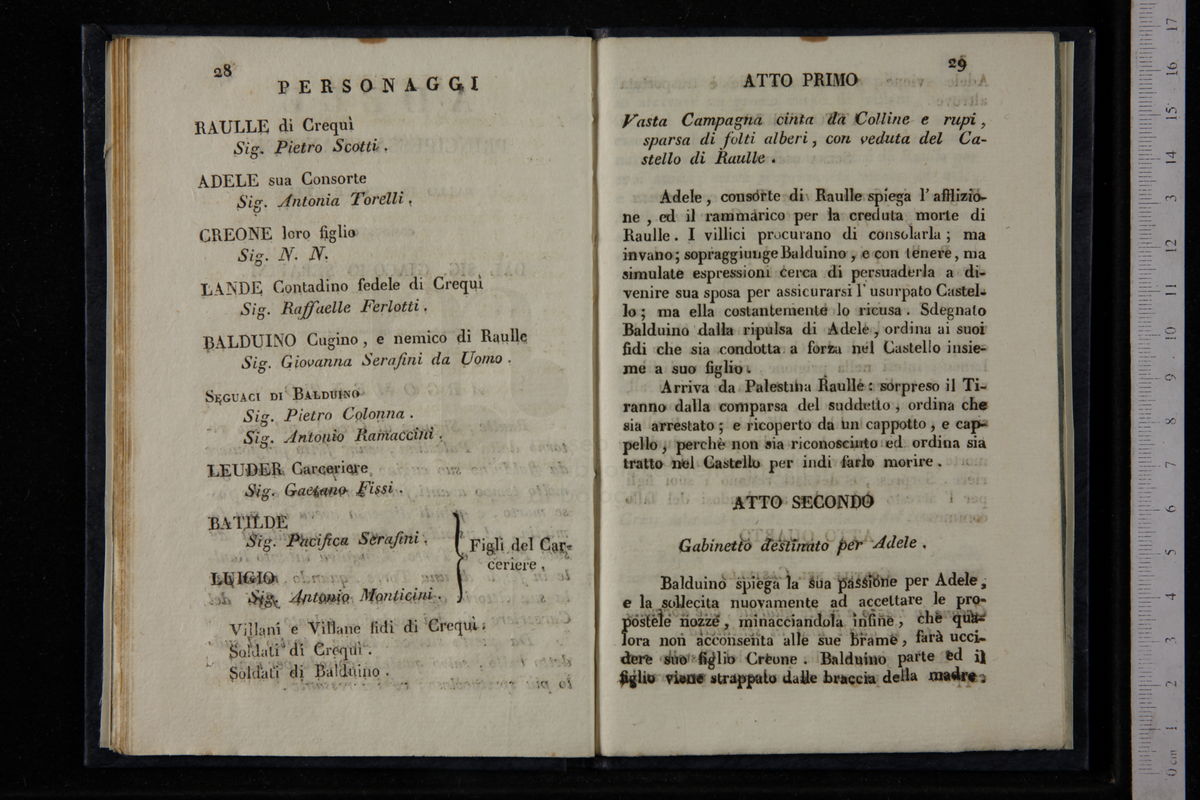 28
PERSONAGGI
RAULLE di Crequì
Sig. Pietro Scotti.
ADELE sua Consorte
Sig. Antonia Torelli.
CREONE loro figlio
Sig. N. N.
LANDE Contadino fedele di Crequì
Sig. Raffaelle Ferlotti.
BALDUINO Cugino, e nemico di Raulle
Sig. Giovanna Serafini da Uomo.
SEGUACI DI BALDUINO
Sig. Pietro Colonna.
Sig. Antonio Ramaccini.
LEUDER Carceriere
Sig. Gaetano Fissi.
BATILDE
Sig. Pacifica Serafini.
Figli del Car-
ceriere.
LUIGIO
Sig. Antonio Monticini.
Villani e Villane fidi di Crequì.
Soldati di Crequì.
Soldati di Balduino.
29
ATTO PRIMO
Vasta Campagna cinta da Colline e rupi,
sparsa di folti alberi, con veduta del Ca-
stello di Raulle.
Adele, consorte di Raulle spiega l' afflizio-
ne, ed il rammarico per la creduta morte di
Raulle. I villici procurano di consolarla; ma
invano; sopraggiunge Balduino, e con tenere, ma
simulate espressioni cerca di persuaderla a di-
venire sua sposa per assicurarsi l' usurpato Castel-
lo; ma ella costantemente lo ricusa. Sdegnato
Balduino dalla ripulsa di Adele, ordina ai suoi
fidi che sia condotta a forza nel Castello insie-
me a suo figlio.
Arriva da Palestina Raulle: sorpreso il Ti-
ranno dalla comparsa del suddetto, ordina che
sia arrestato; e ricoperto da un cappotto, e cap-
pello, perchè non sia riconosciuto ed ordina sia
tratto nel Castello per indi farlo morire.
ATTO SECONDO
Gabinetto destinato per Adele.
Balduino spiega la sua passione per Adele,
e la sollecita nuovamente ad accettare le pro-
postele nozze, minacciandola infine, che qua-
lora non acconsenta alle sue brame, farà ucci-
dere suo figlio Creone. Balduino parte ed il
figlio viene strappato dalle braccia della madre.
0 cm 1 2 3 4 5 6 7 8 9 10 11 12 13 14 15 16 17